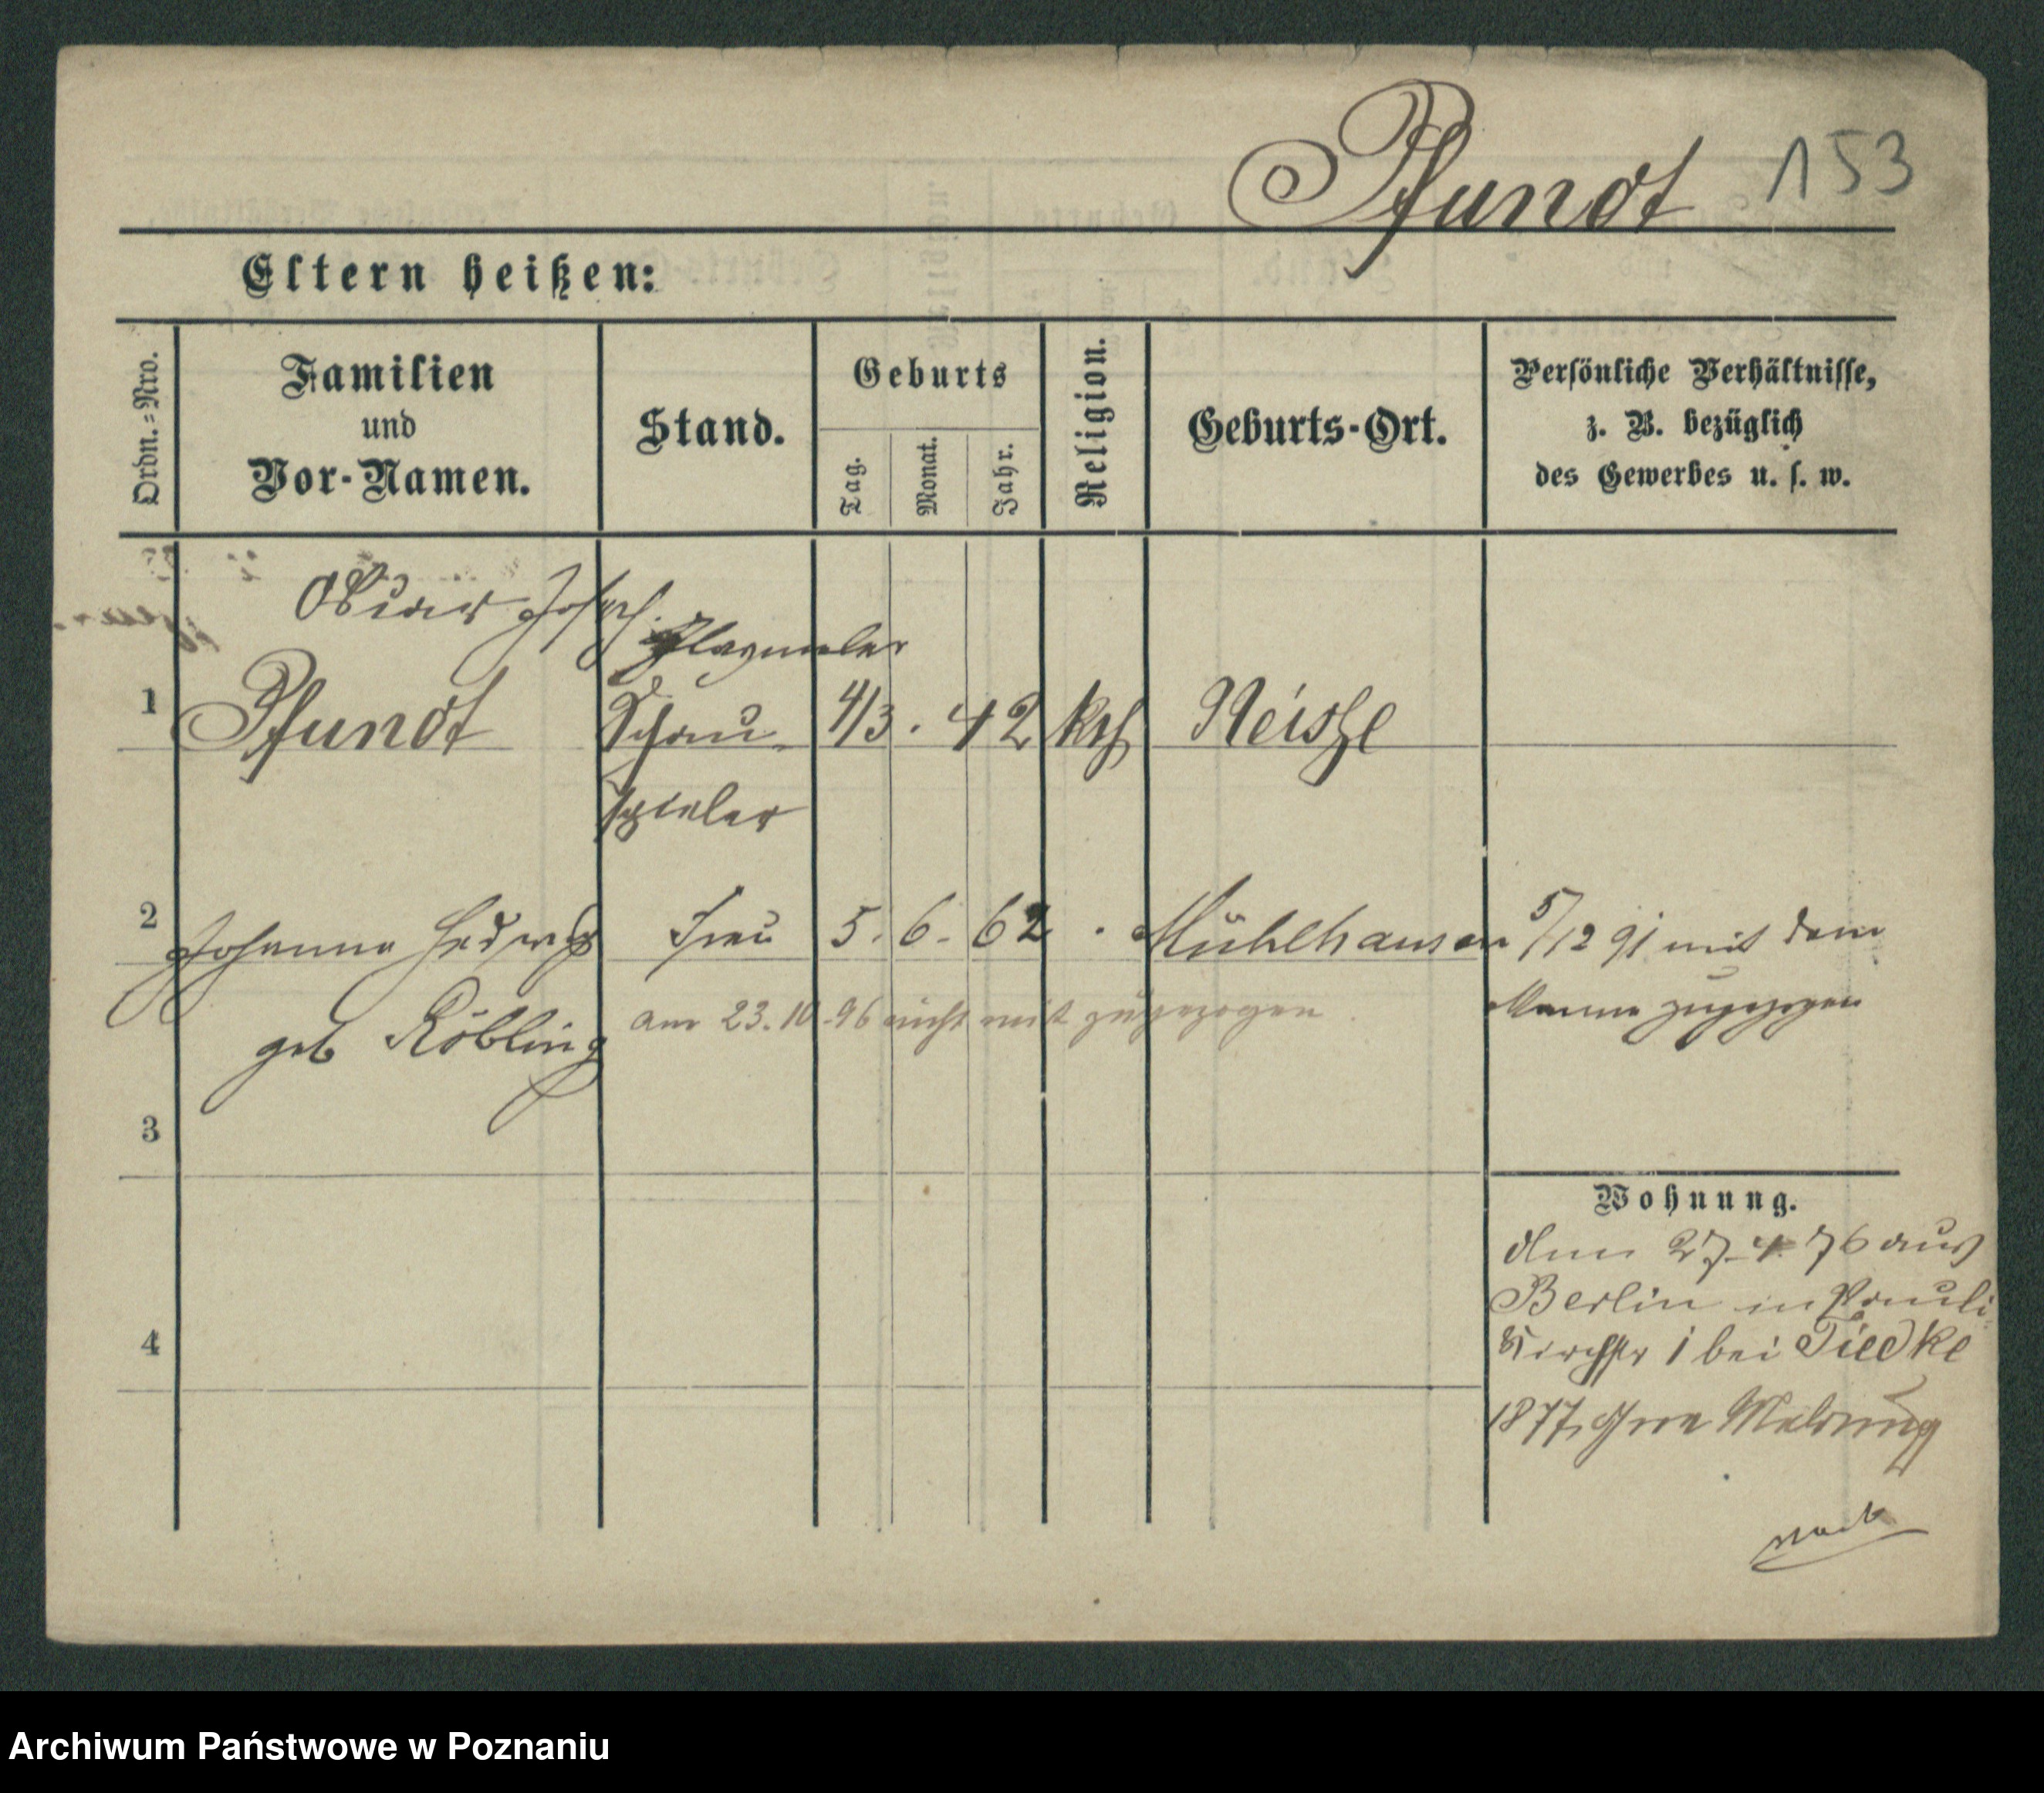 Pfundt 153
Eltern heißen:
Ordn.=Nro.
Familien
und
Vor-Namen.
Stand.
Geburts
Tag.
Monat.
Jahr.
Religion.
Geburts-Ort.
Persönliche Verhältnisse,
z. B. bezüglich
des Gewerbes u. s. w.
Joseph
1 Pfundt Schau- 4/3. 42 kth Neisze
spieler
2 Johanna Hedwig Frau 5. 6. 62 Mühlhausen 5/12 91 mit dem
Manne zugezogen
geb Röbling am 23.10.96 nicht mit zugezogen
3
Wohnung.
den 27.4.76 aus
Berlin in Pauli
4 Kirchstr 1 bei Tiedke
1877 ohne Meldung